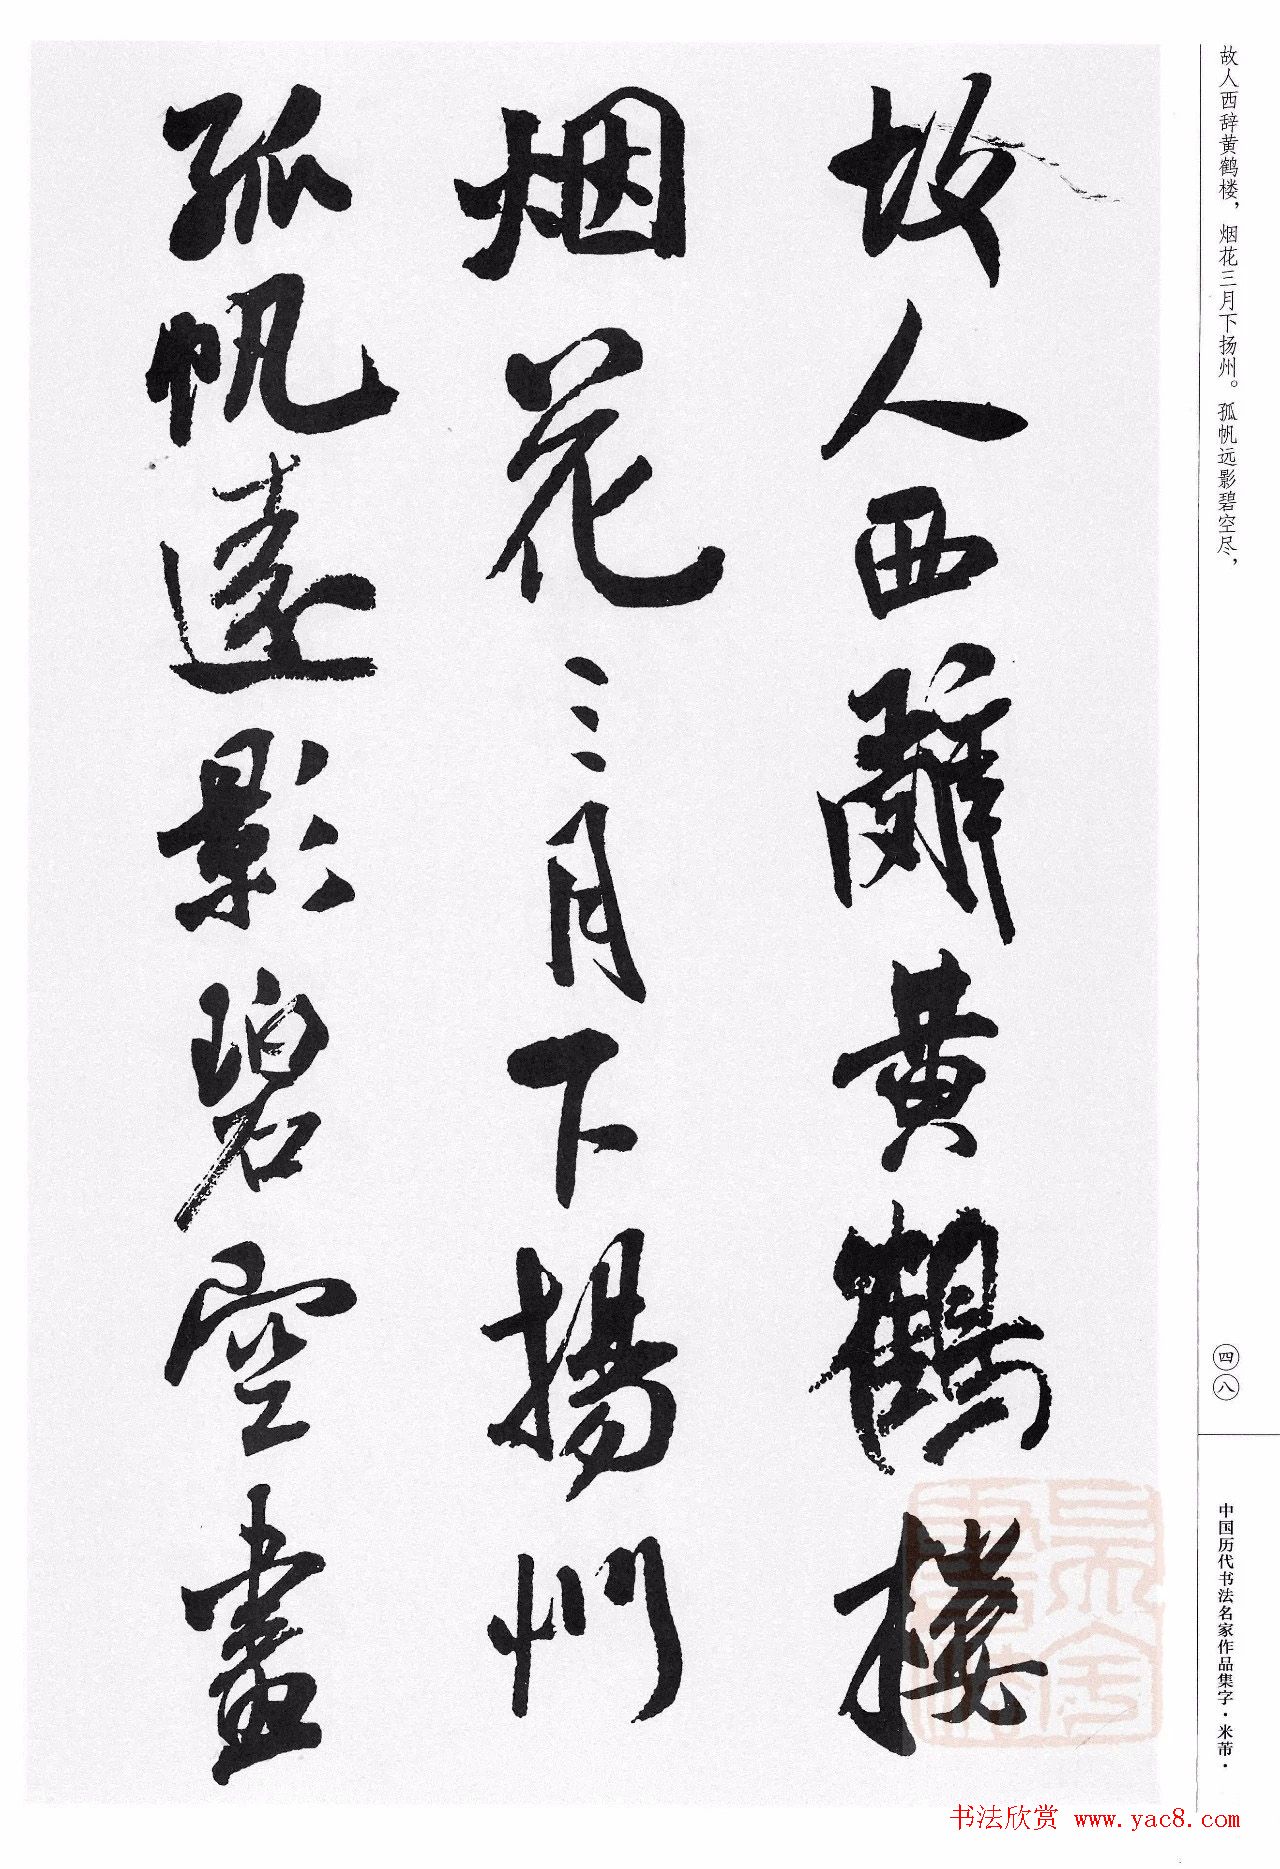 故人西辞黄鹤楼，烟花三月下扬州。孤帆远影碧空尽，
故人西辭黄鶴樓
烟花三月下揚州
孤帆遠影碧空盡
四八
中国历代书法名家作品集字·米芾·
书法欣赏 www.yac8.com